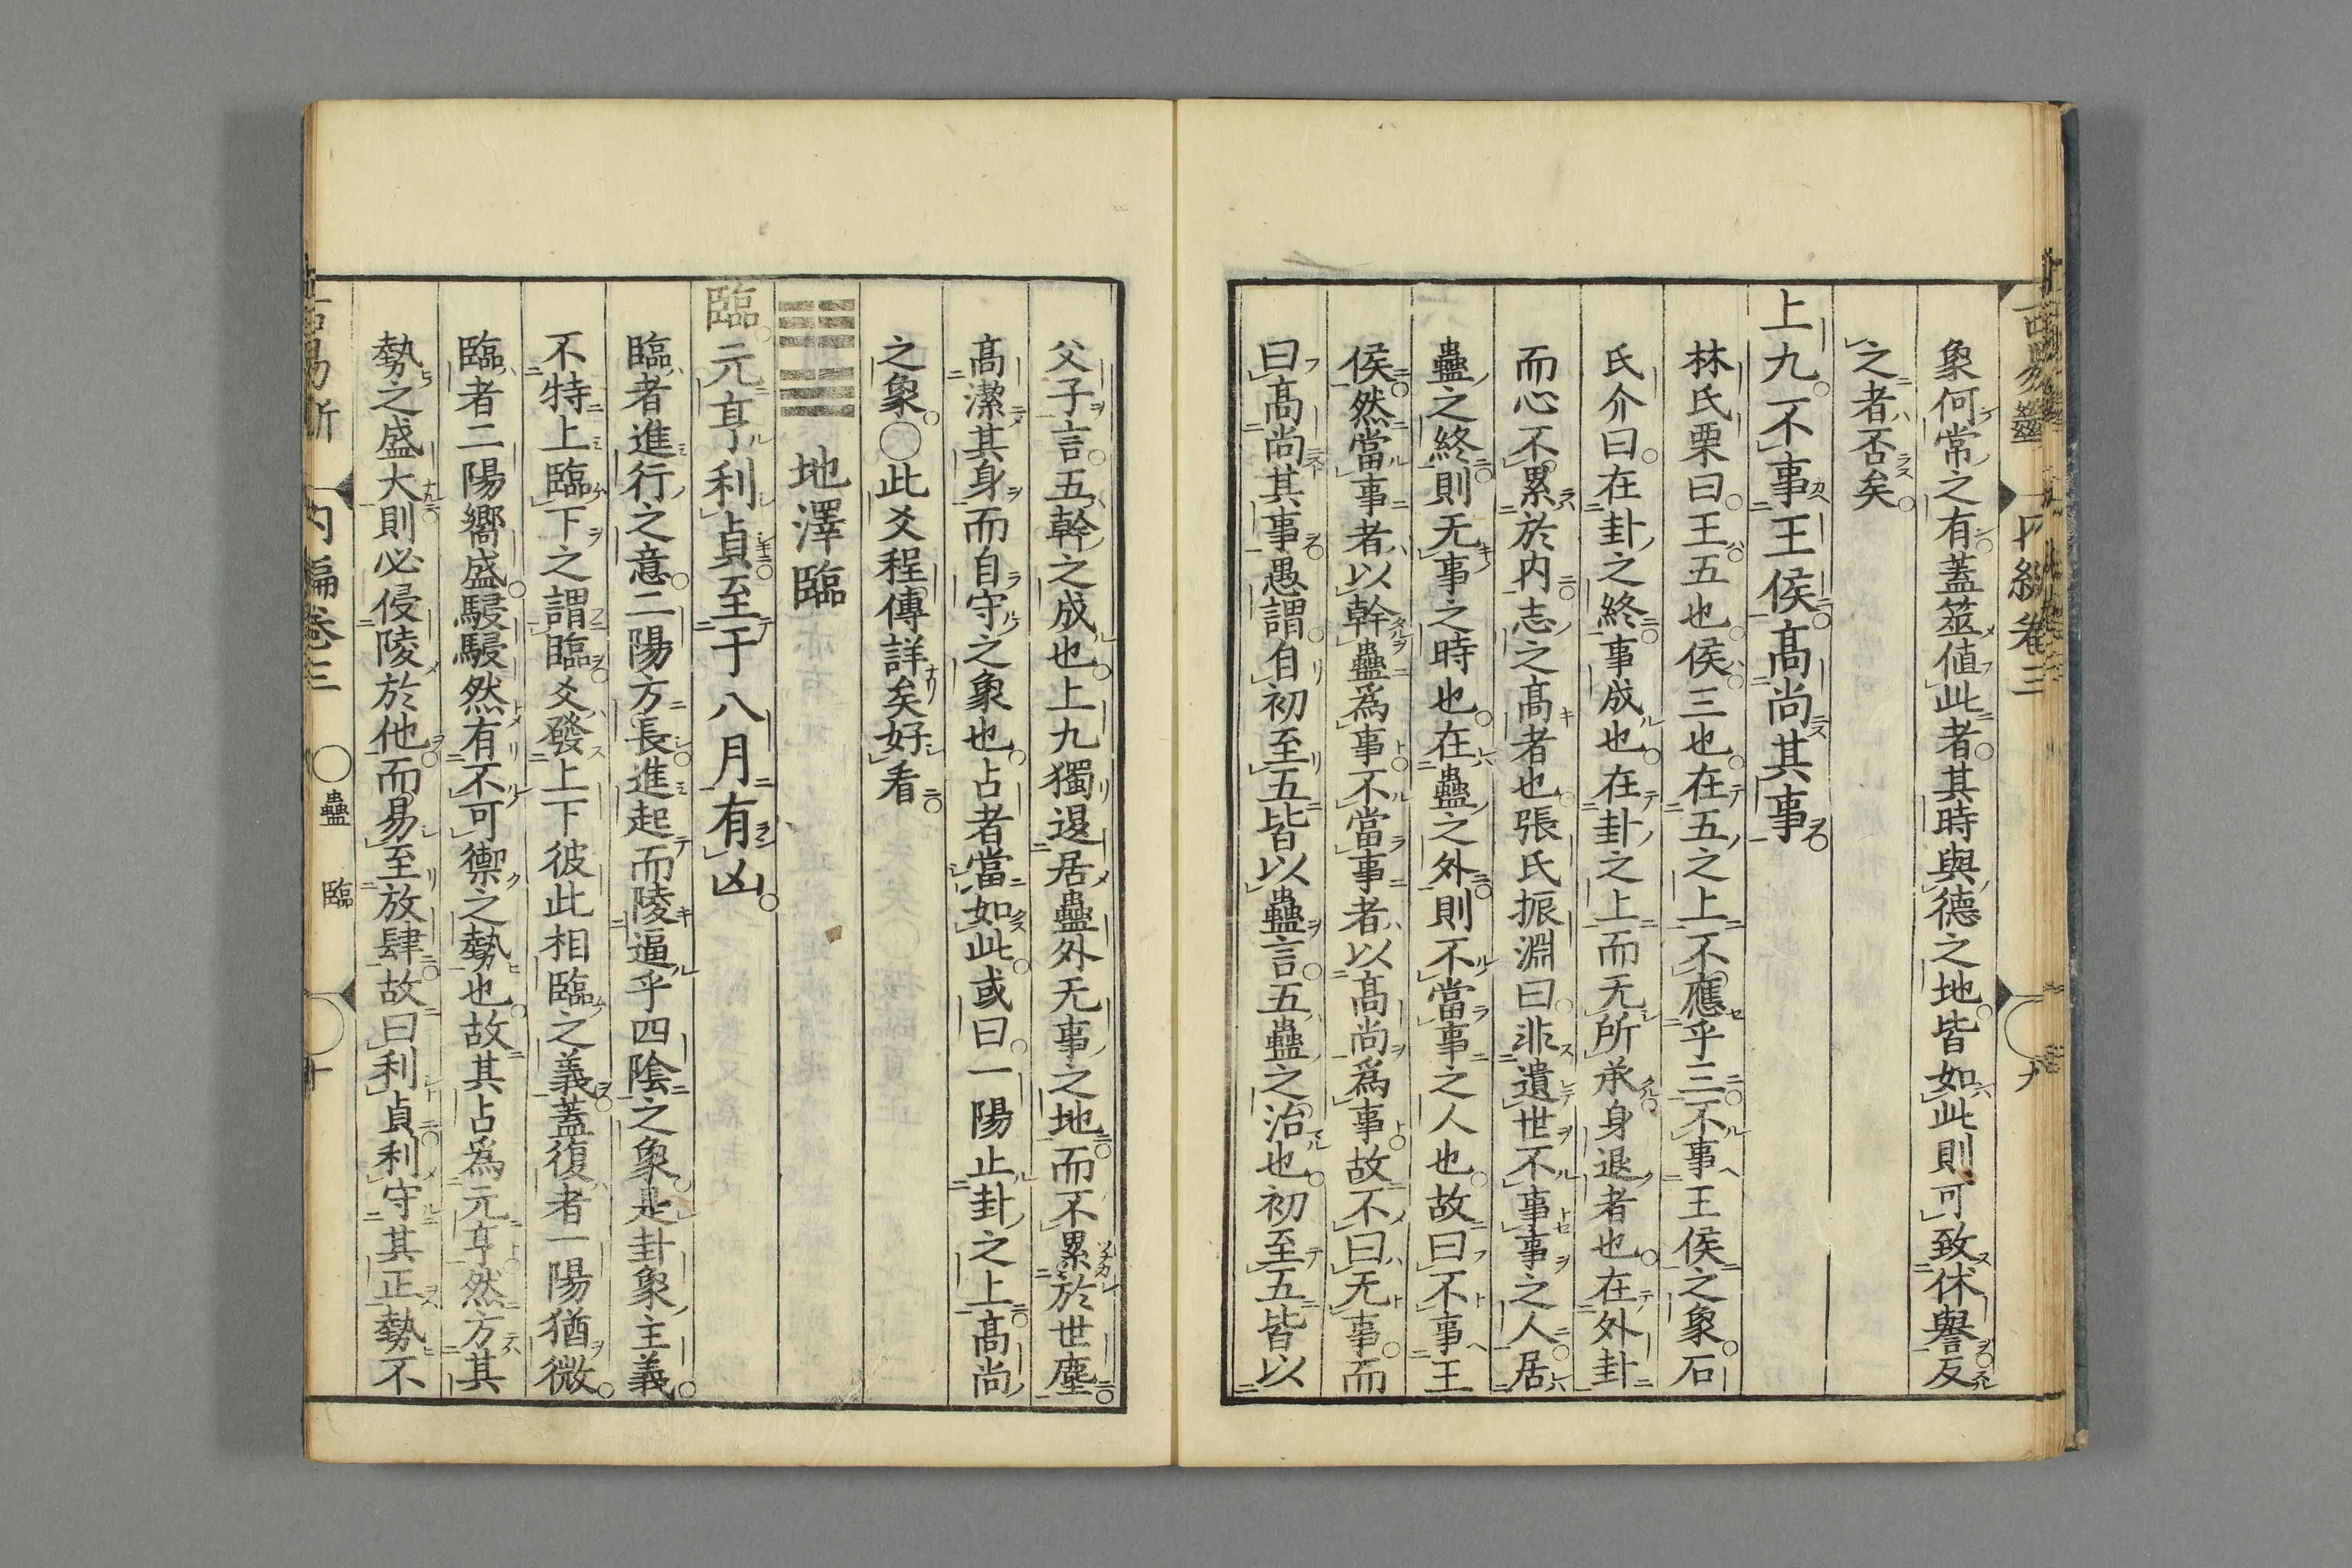 象何常之有蓋筮値此者其時與德之地皆如此則可致休譽反
之者否矣
上九不事王侯高尚其事
林氏栗曰王五也侯三也在五之上不應乎三不事王侯之象石
氏介曰在卦之終事成也在卦之上而无所承身退者也在外卦
而心不累於内志之高者也張氏振淵曰非遺世不事事之人居
蠱之終則无事之時也在蠱之外則不當事之人也故曰不事王
侯然當事者以幹蠱爲事不當事者以高尚爲事故不曰无事而
曰高尚其事愚謂自初至五皆以蠱言五蠱之治也初至五皆以
父子言五幹之成也上九獨退居蠱外无事之地而不累於世塵
高潔其身而自守之象也占者當如此或曰一陽止卦之上高尚
之象〇此爻程傳詳矣好看
䷒ 地澤臨
臨元亨利貞至于八月有凶
臨者進行之意二陽方長進起而陵逼乎四陰之象是卦象主義
不特上臨下之謂臨爻發上下彼此相臨之義蓋復者一陽猶微
臨者二陽嚮盛駸駸然有不可禦之勢也故其占爲元亨然方其
勢之盛大則必侵陵於他而易至放肆故曰利貞利守其正勢不
易 内編卷三 〇 蠱 臨 十